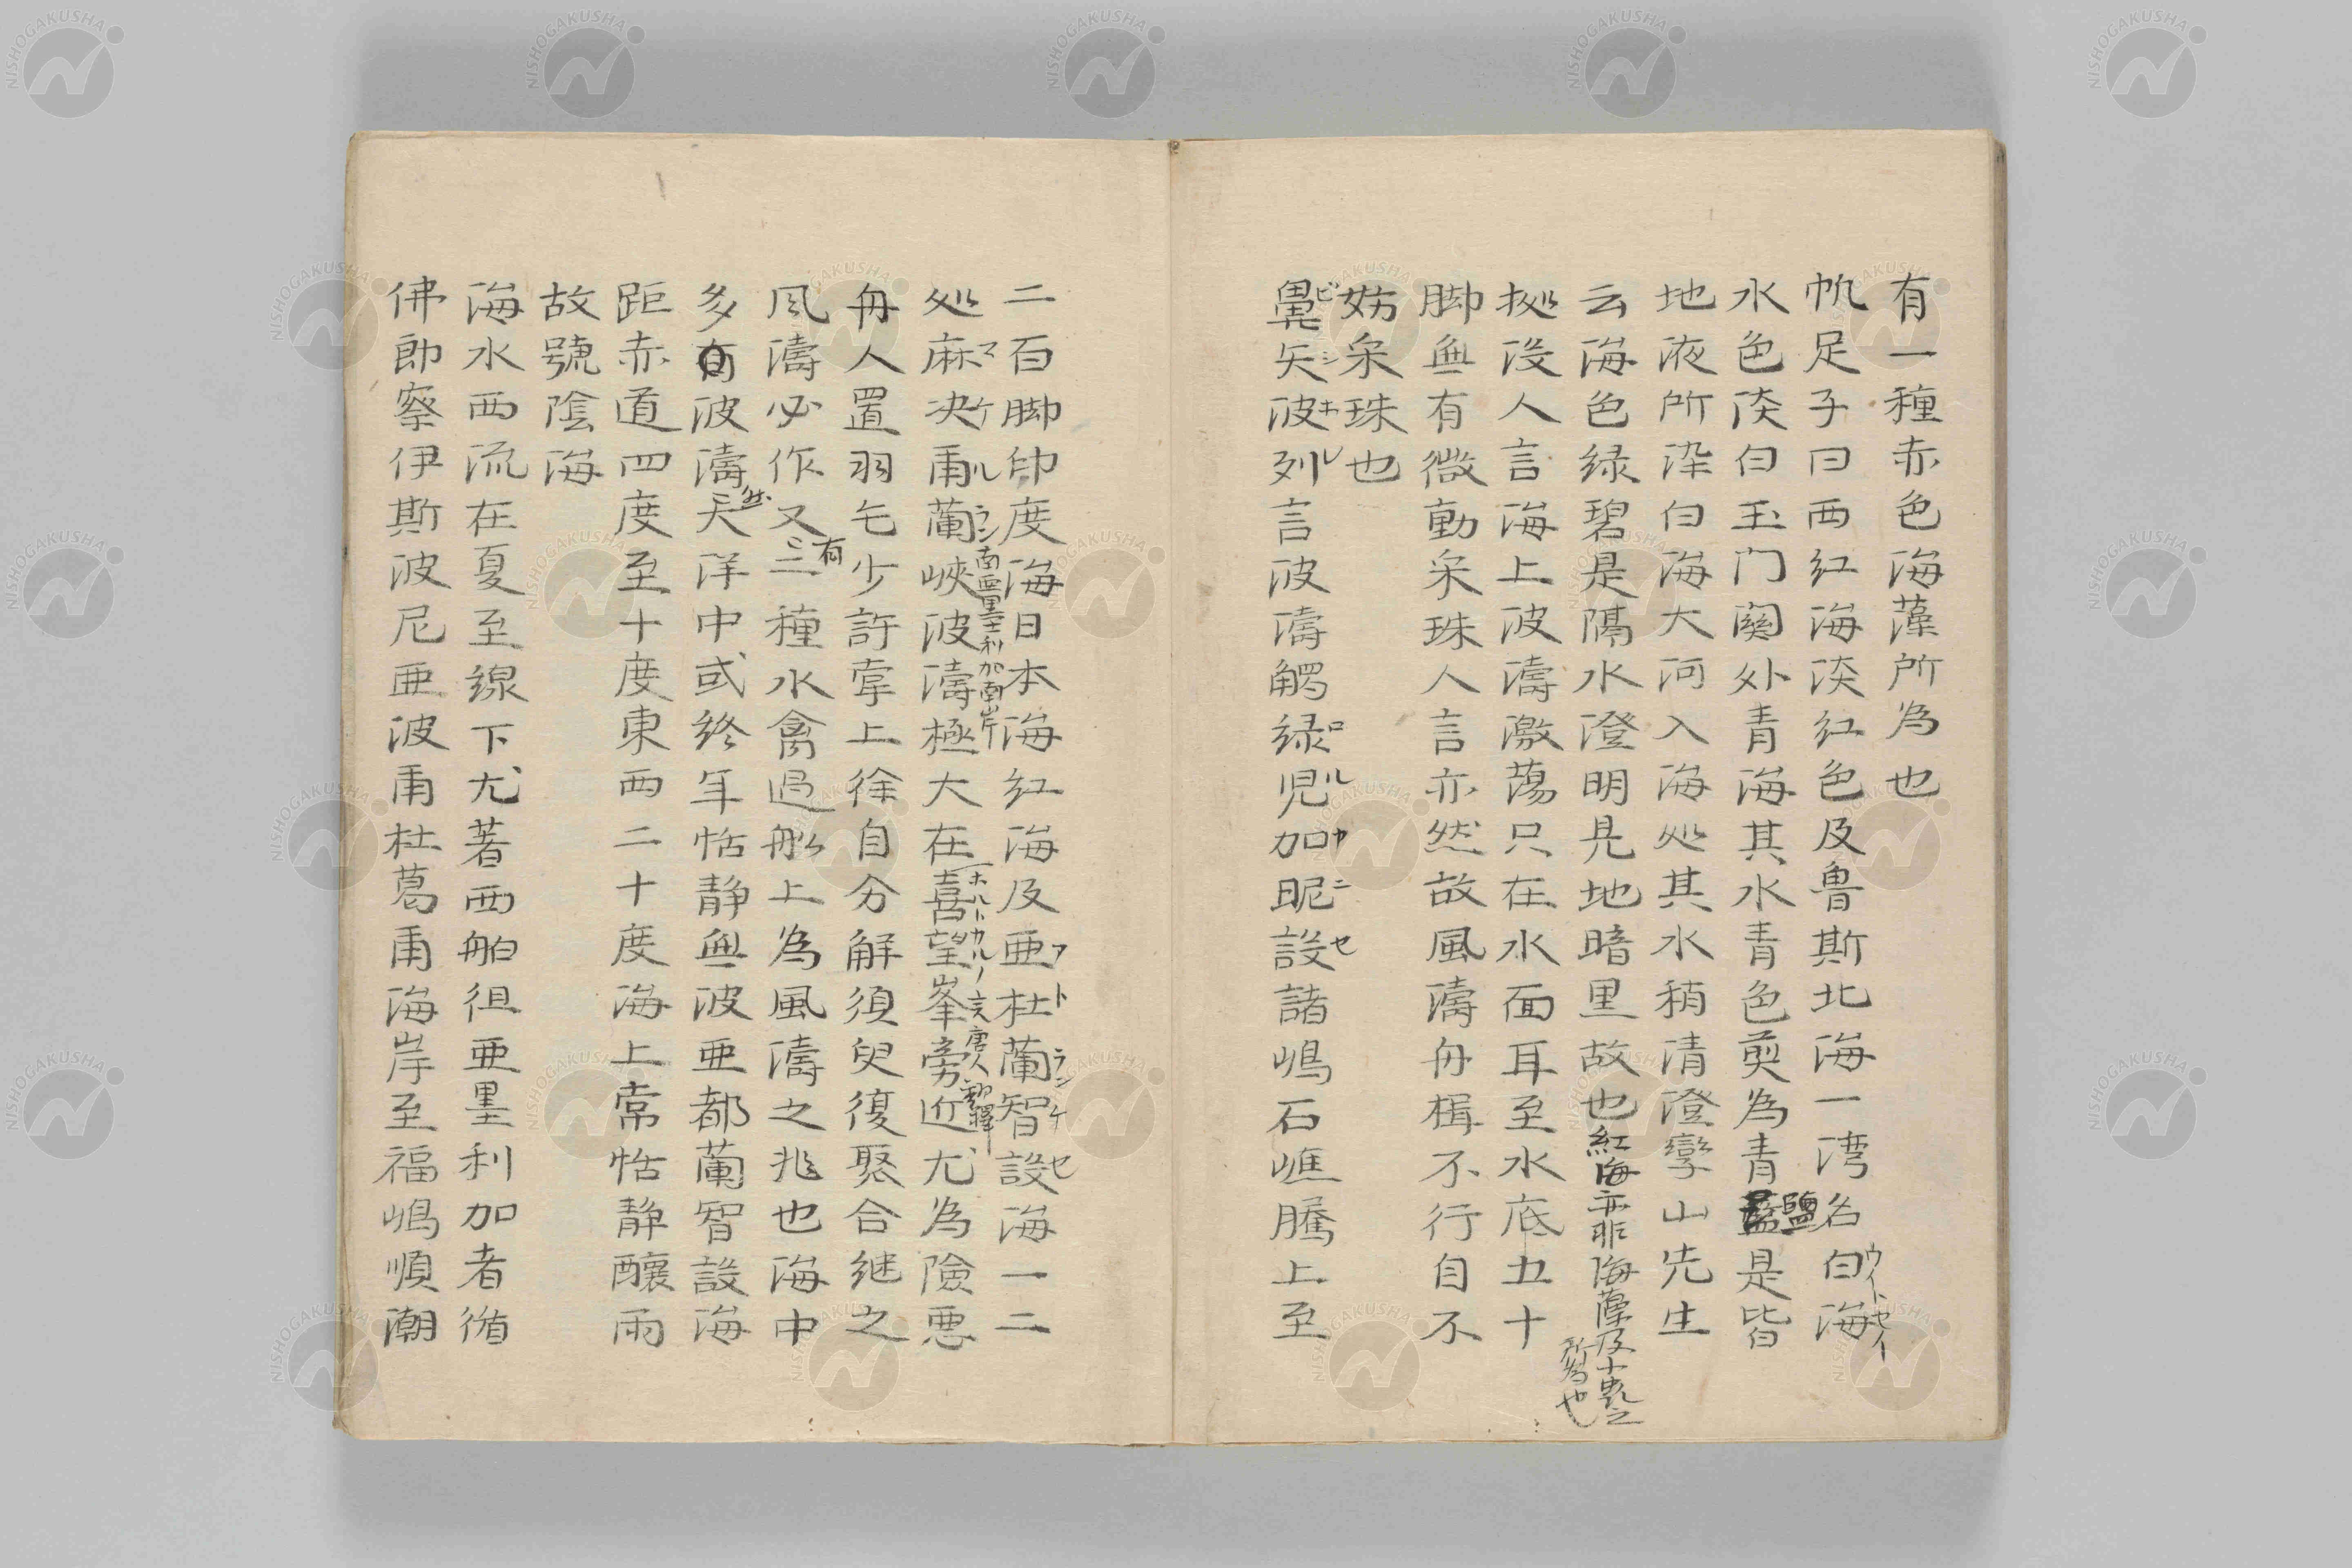 有一種赤色海藻所為也
帆足子曰西紅海淡紅色及魯斯北海一湾名白海
ウイトセイ
水色淡白玉门関外青海其水青色煎為青鹽是皆
地液所染白海大河入海处其水稍清澄孿山先生
云海色緑碧是隔水澄明見地暗里故也紅海亦非海藻及十虫之
所為也
拠没人言海上波濤激蕩只在水面耳至水底五十
脚無有微動采珠人言亦然故風濤舟楫不行自不
妨采珠也
鼻矢波列言波濤觸緑児加昵設諸嶋石嶕騰上至
ビシキレ
ロルカニセ
二百脚印度海日本海紅海及亜杜蘭智設海一二
アトランケセ
处麻決甫蘭峽波濤極大在喜望峯旁近尤為險悪
マケルラン
南亜墨利加南岸
ホハトカルノ言唐人翻譯
舟人置羽毛少許掌上徐自分解須臾復聚合継之
風濤必作又有三種水禽過船上為風濤之兆也海中
多有波濤然天洋中或終年恬静無波亜都蘭智設海
距赤道四度至十度東西二十度海上常恬静釀雨
故號陰海
海水西流在夏至線下尤著西舶徂亜墨利加者循
佛郎察伊斯波尼亜波甫杜葛甫海岸至福嶋順潮
NISHOGAKUSHA